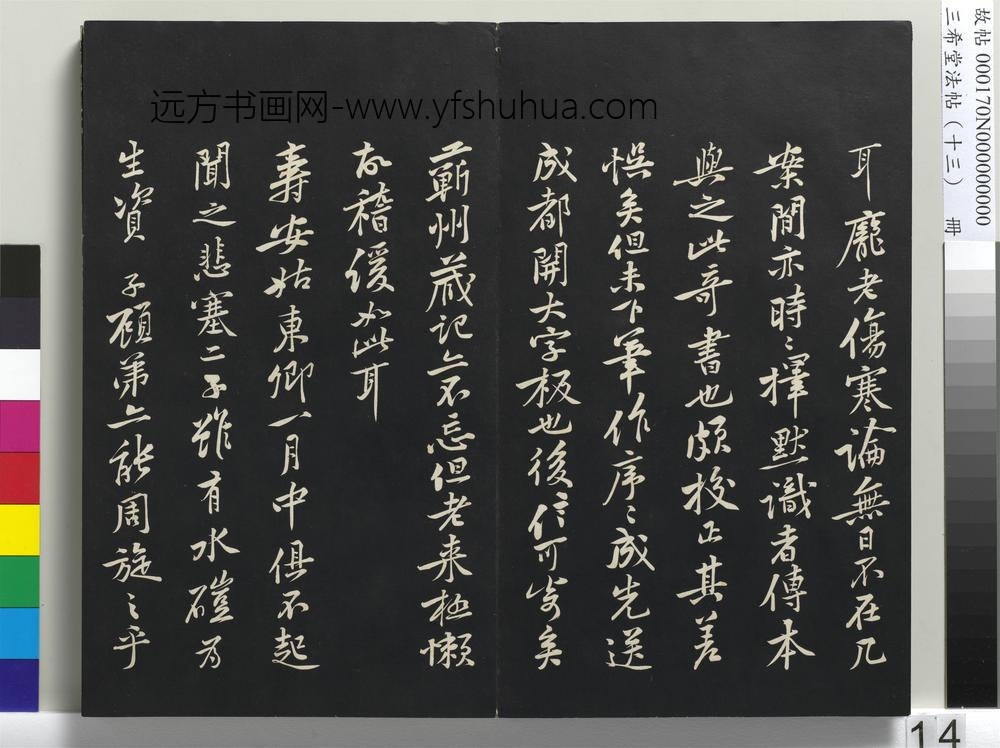 耳龐老傷寒論無日不在几
案間亦時〻擇默識者傳本
與之此奇書也頗校正其差
悞矣但未下筆作序〻成先送
成都開大字板也後信可寄矣
蘄州藏記亦不忘但老来極懶
故稽緩如此耳
壽安姑東卿一月中俱不起
聞之悲塞二子雖有水磑為
生資 子顧弟亦能周旋之乎
远方书画网-www.yfshuhua.com
故帖 000170N000000000
三希堂法帖（十三） 册
14